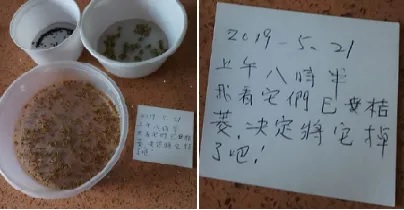 2019-5.21
上午八時半
我看它們已要枯
萎,決定將它掉
了吧!